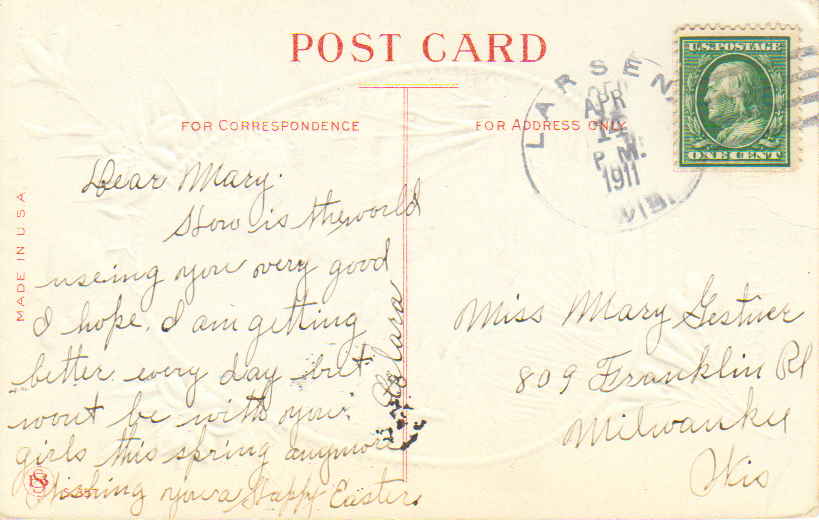 POST CARD
FOR CORRESPONDENCE
FOR ADDRESS ONLY
MADE IN U S A
LARSEN
APR
P.M.
1911
WIS.
U.S. POSTAGE
ONE CENT
Dear Mary.
How is the world
useing you very good
I hope. I am getting
better every day but
wont be with you
girls this spring anymore
Wishing you a Happy Easter.
Clara
Miss Mary Gestner
809 Franklin Pl
Milwaukee
Wis